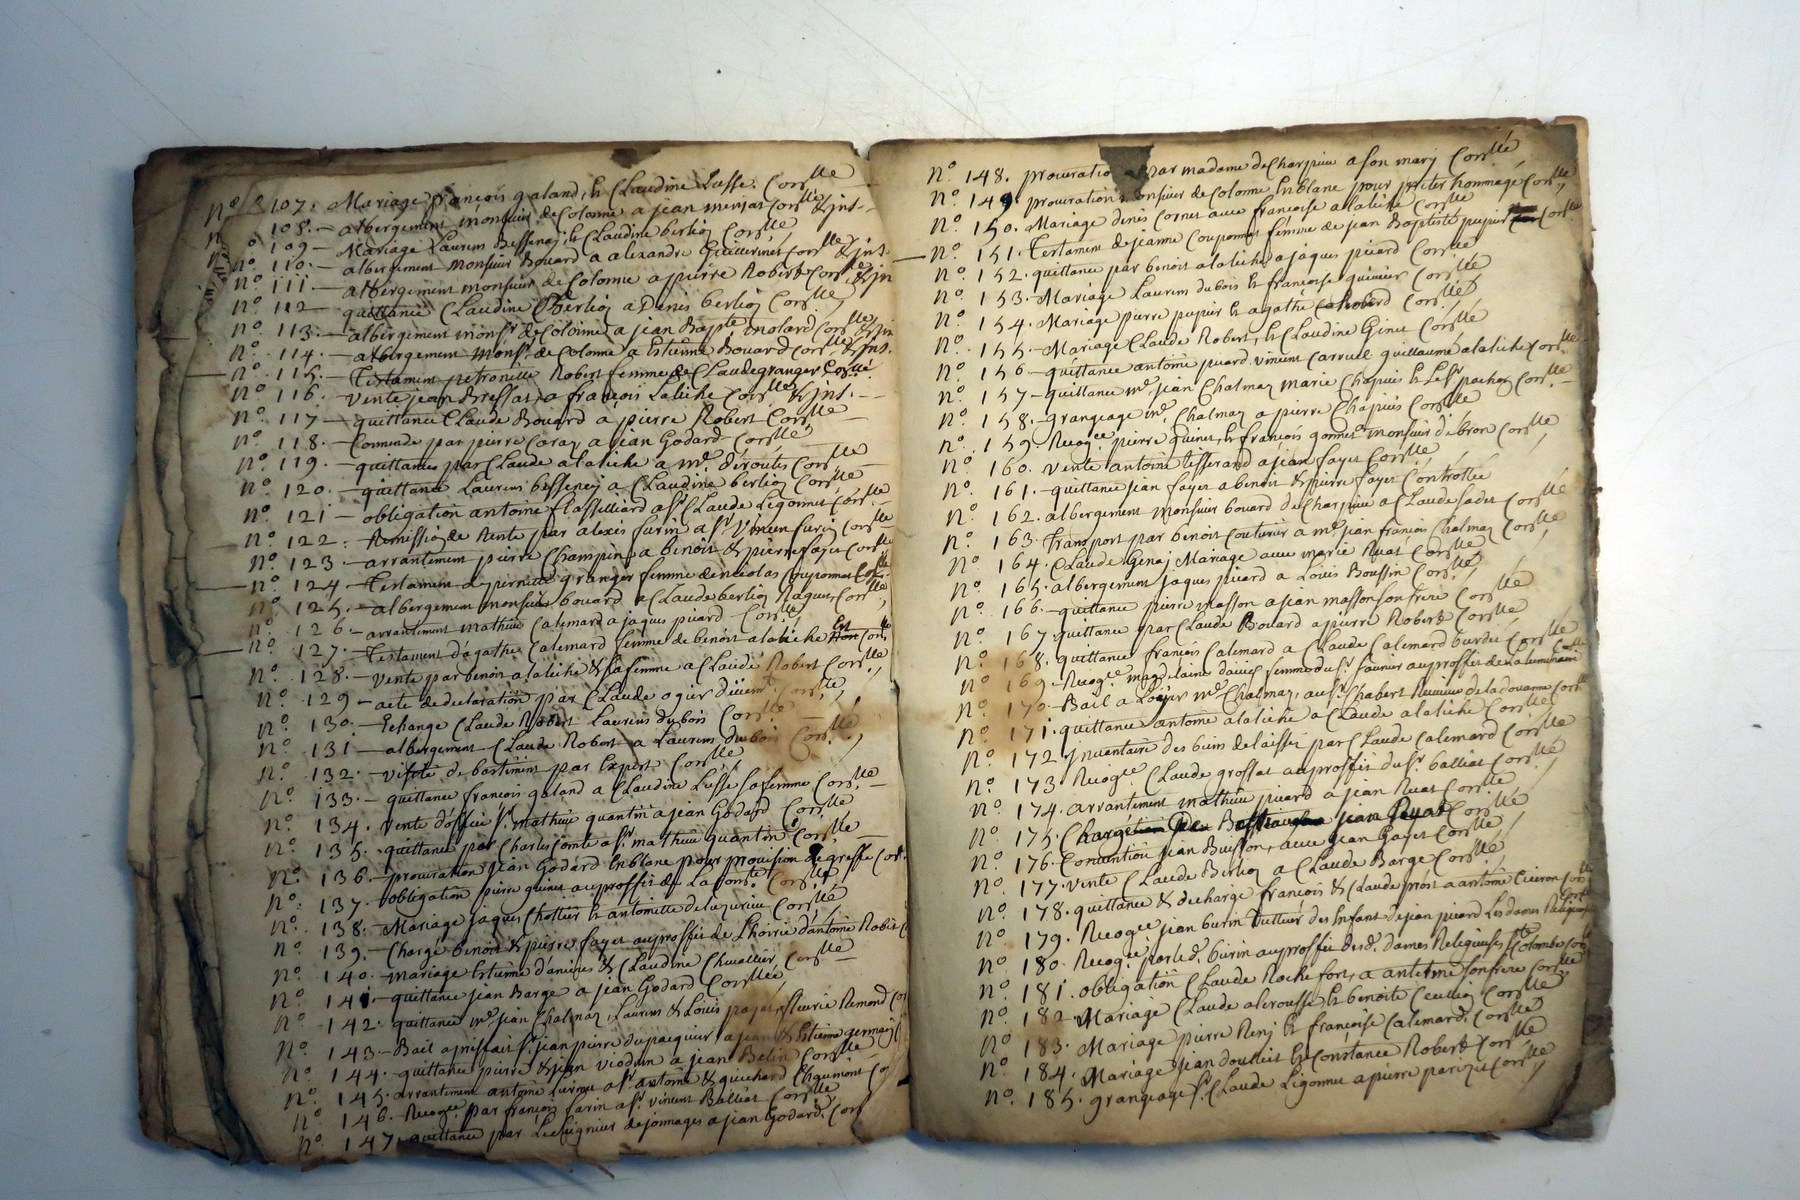 n.o 107. Mariage françois galand, & Claudine Lusse. Con.lle
n.o 108. – albergement monsieur de Colonne a jean mersas Con.lle & jns.
n.o 109 – Mariage Laurens Bessenay & Claudine berlioz Con.lle
n.o 110. – albergement monsieur Bouard a alexandre Con.lle & jns.
n.o 111 – albergement monsieur de Colonne a pierre Robert Con.lle & jn
n.o 112 – quittance Claudine Berlioz a Denis berlioz Con.lle
n.o 113. – albergement mons.r de Colonne a jean Bapte. molard Con.lle & jn
n.o 114. – albergement mons.r de Colonne a Estienne Bouard Con.lle & jns.
n.o 115. – Testament petronille Robert femme de Claude granger Con.lle
n.o 116. – vente jean Bressat a françois Laliche Con.lle & jns.
n.o 117 – quittance Claude Bouard a pierre Robert Con.lle
n.o 118. – Commande par pierre Caraz a jean Godard Con.lle
n.o 119. – quittances par Claude alaliche a m.e déroutes Con.lle
n.o 120. – quittance Laurens bessenay a Claudine berlioz Con.lle
n.o 121 – obligation antoine flassilliard a s.r Claude Ligonnet Con.lle
n.o 122. – Remission de Rente par alexis furin a s.r vincen furin Con.lle
n.o 123. – arrantement pierre Champin a benoit & pierre fayet Con.lle
n.o 124 – Testament de pernette granger femme de nicolas Couponnet Con.lle
n.o 125. – albergement monsieur bouard a Claude berlioz Con.lle
n.o 126. – arrantement mathieu Calemard a jaques picard Con.lle
n.o 127. – Testament dagathe Calemard femme de benoit alaliche Con.lle
n.o 128. – vente par benoit alaliche & sa femme a Claude Robert Con.lle
n.o 129 – acte de declaration par Claude ogier Con.lle
n.o 130. – Echange Claude Robert Laurens dubois Con.lle
n.o 131 – albergement Claude Robert a Laurens dubois Con.lle
n.o 132. – visite de bastiment par Expert Con.lle
n.o 133. – quittance françois galand a Claudine Lusse sa femme Con.lle
n.o 134. vente doffice s.r mathieu quantin a jean Godard Con.lle
n.o 135. quittance par Charles Comte a s.r mathieu quantin Con.lle
n.o 136. – procuration jean Godard En blanc pour provision de greffe Con.
n.o 137. obligation pierre quinet au proffit de Con.lle
n.o 138. – Mariage jaques Chollier & antoinette Con.lle
n.o 139. – Charge benoit & pierre fayet au proffit de Lhoirie dantoine Robert C
n.o 140. – mariage Estienne & Claudine Chevallier Con.lle
n.o 141. – quittance jean Barge a jean Godard Con.lle
n.o 142. quittance m.e jean Chalmaz Laurens & Louis payet, fleurie Remond Co
n.o 143 – Bail a prisfait s.r jean pierre dupacquier a jean & Estienne germain C
n.o 144. – quittance pierre & jean viodrin a jean Belin Con.lle
n.o 145. arrantement antoine a s.r antoine & guichard Chaumont Co
n.o 146. Recog.ce par françois farin a s.r vincent Balliat Con.lle
n.o 147. quittance par Le seigneur de jonnages a jean Godard. Con
n.o 148. procuratio par madame de Charpieu a son mary Con.lle
n.o 149. procuration monsieur de Colonne En blanc pour prêter hommage Con.lle
n.o 150. Mariage denis Cornet avec françoise alaliche Con.lle
n.o 151. Testament de jeanne Couponnet femme de jean Baptiste pupier Con.lle
n.o 152. quittance par benoit alaliche a jaques picard Con.lle
n.o 153. Mariage Laurens dubois & françoise quinier Con.lle
n.o 154. Mariage pierre pupier & agathe Con.lle
n.o 155. – Mariage Claude Robert, & Claudine Ginet Con.lle
n.o 156 – quittance antoine picard vincent Carrut guillaume alaliche Con.lle
n.o 157 – quittance m.e jean Chalmaz marie Chapuis & le s.r pachoz Con.lle
n.o 158. – grangeage m.e Chalmaz a pierre Chapuis Con.lle
n.o 159. Recog.ce pierre quinet, & françois gonnet a monsieur de bron Con.lle
n.o 160. vente antoine tisserand a jean fayet Con.lle
n.o 161. – quittance jean fayet a benoit & pierre fayet Controllée
n.o 162. albergement monsieur bouard de Charpieu a Claude sadet Con.lle
n.o 163. Transport par benoit Couturier a m.e jean françois Chalmaz Con.lle
n.o 164. Claude Genaj Mariage avec marie Ruat Con.lle
n.o 165. albergement jaques picard a Louis Boussin Con.lle
n.o 166. – quittance pierre masson a jean masson son frere Con.lle
n.o 167. quittance par Claude Bouard a pierre Robert Con.lle
n.o 168. quittance françois Calemard a Claude Calemard burdié Con.lle
n.o 169. Recog.ce magdelaine femme du s.r faunier au proffit de la luminaire Con.lle
n.o 170. – Bail a Loyer m.e Chalmaz, au s.r Chabert Receveur de la douanne Con.lle
n.o 171. quittance antoine alaliche a Claude alaliche Con.lle
n.o 172 Jnventaire des biens delaissés par Claude Calemard Con.lle
n.o 173 Recog.ce Claude grossat au proffit du s.r balliat Con.lle
n.o 174. arrantement mathieu picard a jean Ruat Con.lle
n.o 175. Charge jean Ruat Con.lle
n.o 176. Convention jean Buisson, avec jean Gayet Con.lle
n.o 177. vente Claude Berlioz a Claude Barge Con.lle
n.o 178. quittance & decharge françois & Claude prost a antoine Ciceron Con.lle
n.o 179. Recog.ce jean burin tutteur des Enfants de jean picard Les dames Religieuses Con.lle
n.o 180. Recog.ce par led. burin au proffit desd. dames Religieuses S.te Colombe Con.lle
n.o 181. obligation Claude Rochefort a antoine son frere Con.lle
n.o 182. Mariage Claude alerousse & benoite Ceuilloz Con.lle
n.o 183. Mariage pierre Renj & françoise Calemard. Con.lle
n.o 184. Mariage jean doulliet & Constance Robert Con.lle
n.o 185. grangeage s.r Claude Ligonnet a pierre parizet Con.lle